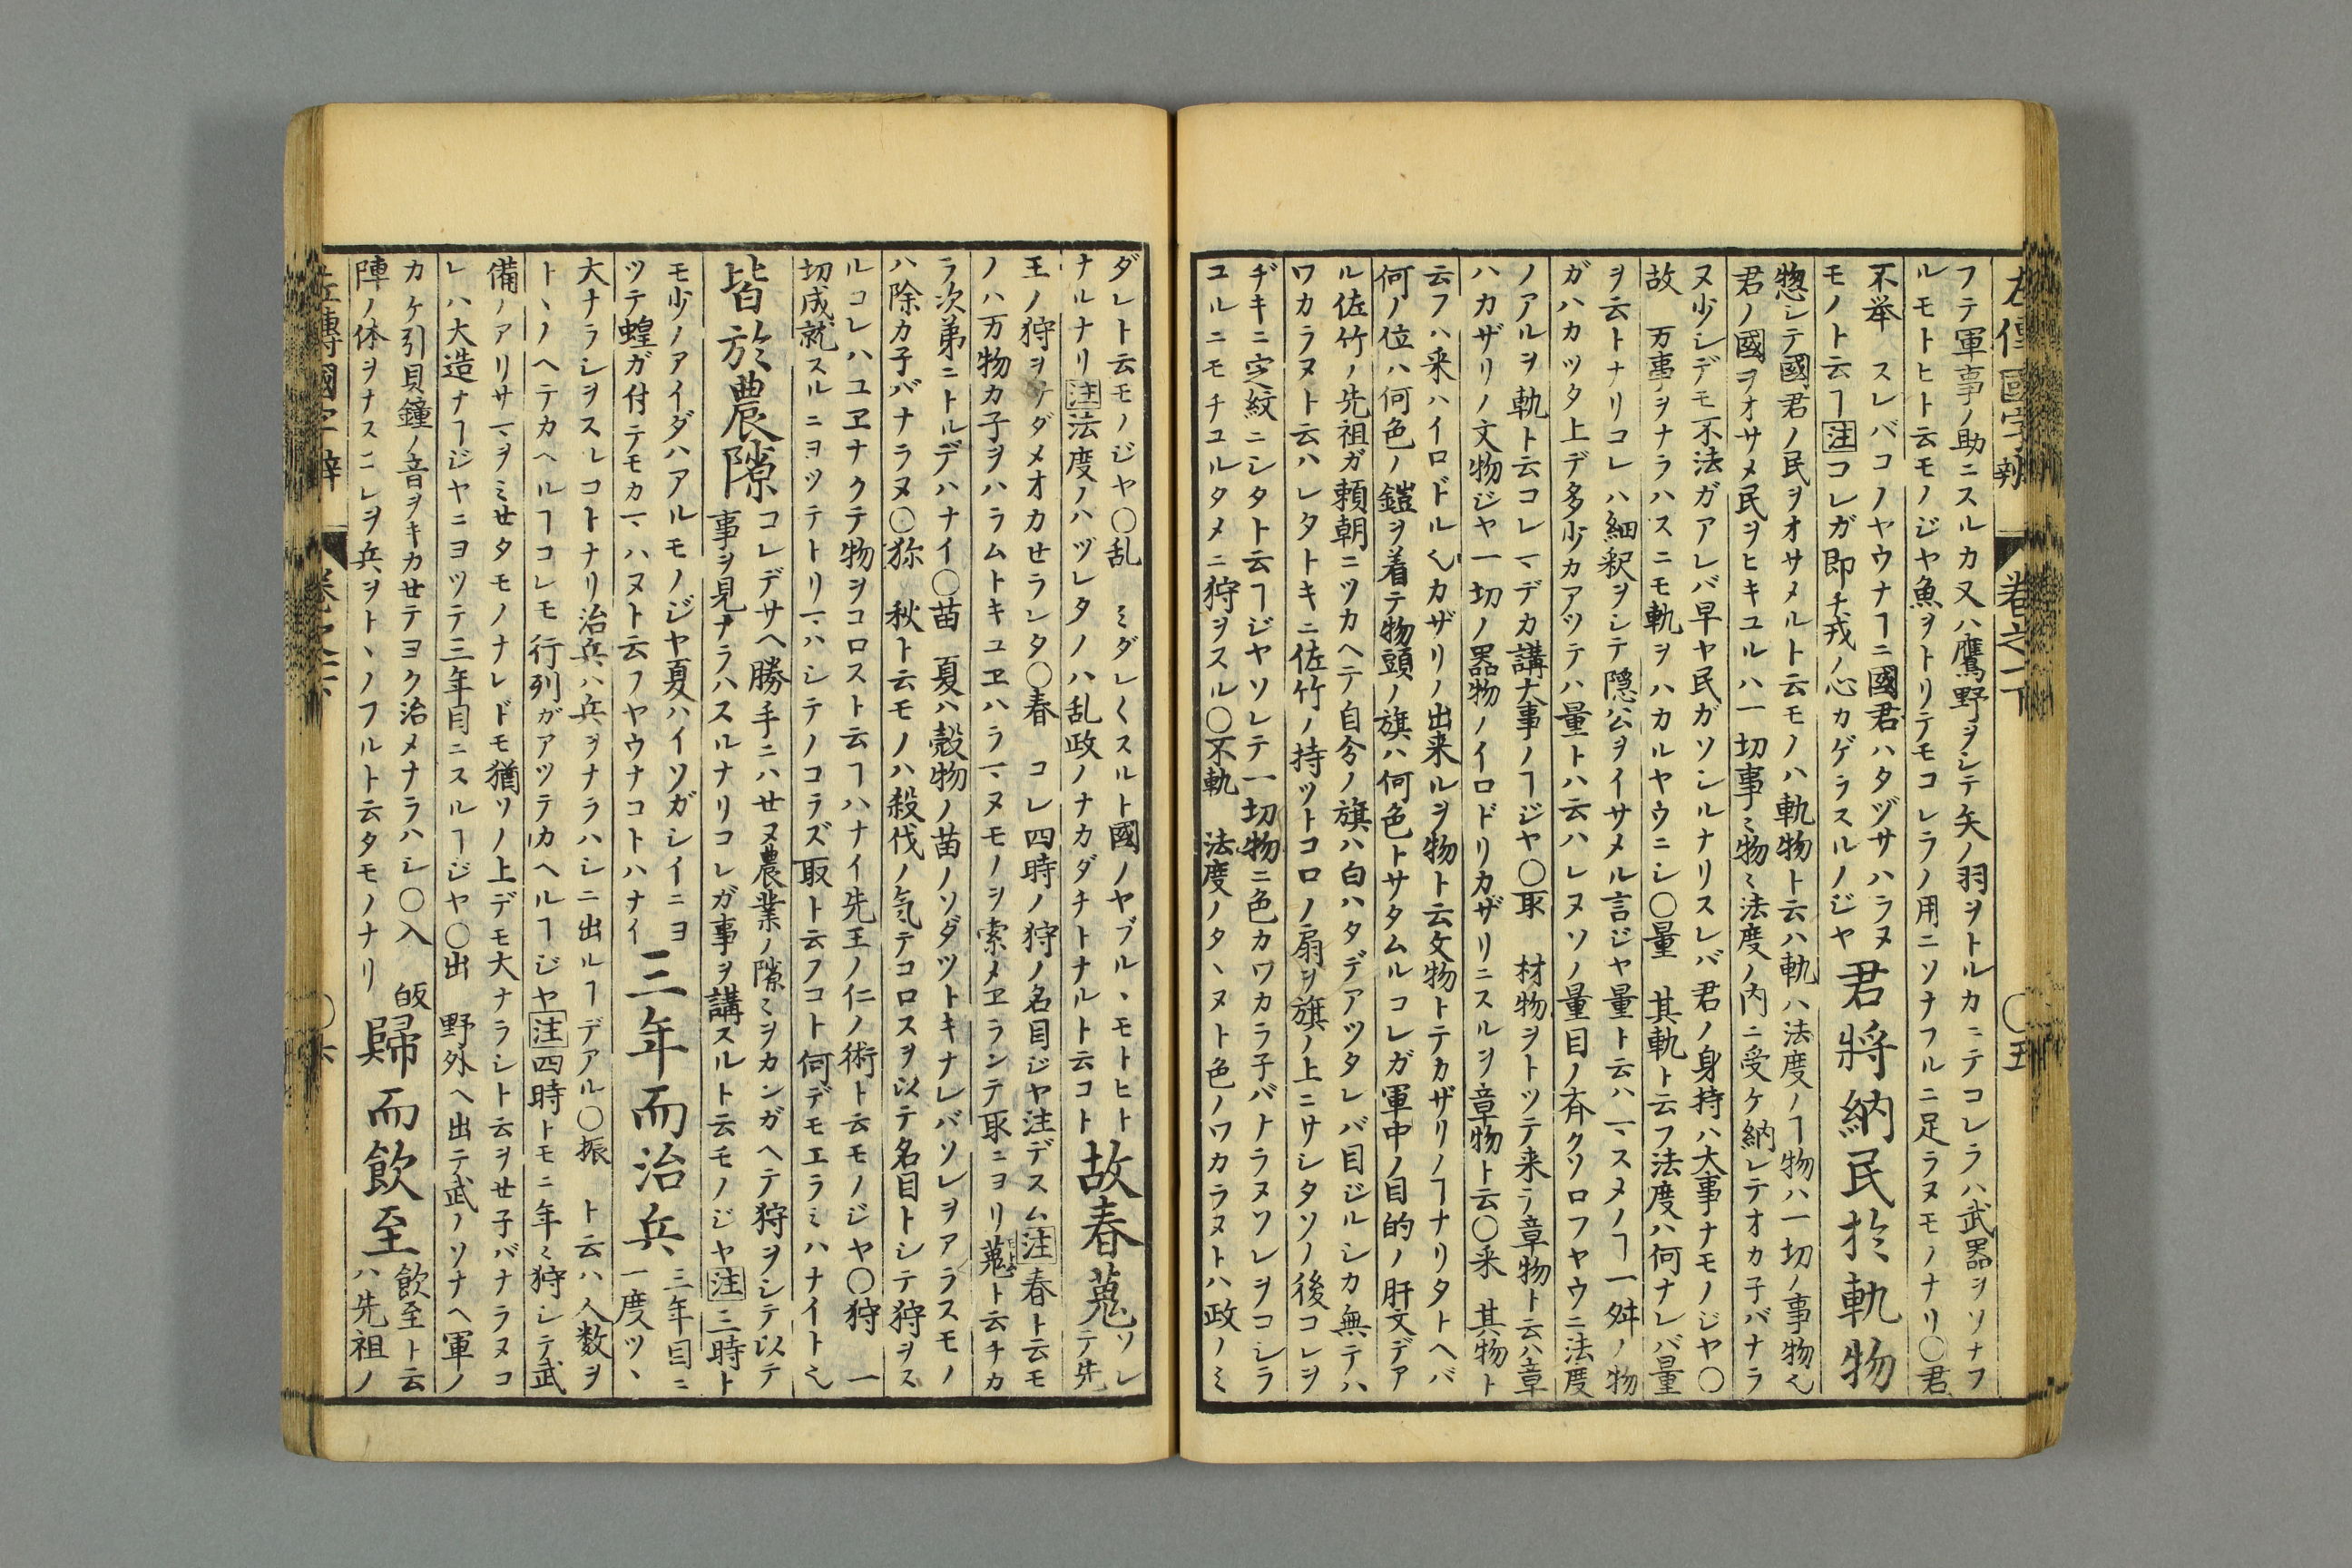 左傳國字辯 卷之一下 〇五
フテ軍事ノ助ニスルカ又ハ鷹野ヲシテ矢ノ羽ヲトルカニテコレラハ武器ヲソナフ
ルモトヒト云モノジヤ魚ヲトリテモコレラノ用ニソナフルニ足ラヌモノナリ〇君
不举 スレバコノヤウナヿニ國君ハタヅサハラヌ
モノト云ヿ注コレガ即チ戎ノ心カゲラスルノジヤ
君將納民於軌物
惣シテ國君ノ民ヲオサメルト云モノハ軌物ト云ハ軌ハ法度ノヿ物ハ一切ノ事物也
君ノ國ヲオサメ民ヲヒキユルハ一切事〻物〻法度ノ内ニ受ケ納レテオカ子バナラ
ヌ少シデモ不法ガアレバ早ヤ民ガソシルナリスレバ君ノ身持ハ大事ナモノジヤ〇
故 万事ヲナラハスニモ軌ヲハカルヤウニシ〇量 其軌ト云フ法度ハ何ナレバ量
ヲ云トナリコレハ細釈ヲシテ隠公ヲイサメル言ジヤ量ト云ハマスメノヿ一舛ノ物
ガハカツタ上デ多少カアツテハ量トハ云ハレヌソノ量目ノ斉クソロフヤウニ法度
ノアルヲ軌ト云コレマデカ講大事ノヿジヤ〇取 材物ヲトツテ来ラ章物ト云ハ章
ハカザリノ文物ジヤ一切ノ器物ノイロドリカザリニスルヲ章物ト云〇采 其物ト
云フハ采ハイロドル也カザリノ出来ルヲ物ト云文物トテカザリノヿナリタトヘバ
何ノ位ハ何色ノ鎧ヲ着テ物頭ノ旗ハ何色トサタムルコレガ軍中ノ目的ノ肝文デア
ル佐竹ノ先祖ガ頼朝ニツカヘテ自分ノ旗ハ白ハタデアツタレバ目ジルシカ無テハ
ワカラヌト云ハレタトキニ佐竹ノ持ツトコロノ扇ヲ旗ノ上ニサシタソノ後コレヲ
ヂキニ定紋ニシタト云ヿジヤソレテ一切物ニ色カワカラ子バナラヌソレヲコシラ
ユルニモチユルタメニ狩ヲスル〇不軌 法度ノタヽヌト色ノワカラヌトハ政ノミ
ダレト云モノジヤ〇乱 ミダレ〱スルト國ノヤブルヽモトヒト
ナルナリ注法度ノハヅレタノハ乱政ノナカダチトナルト云コト
故春蒐 ソレテ先
王ノ狩ヲサダメオカセラレタ〇春 コレ四時ノ狩ノ名目ジヤ注デスム注春ト云モ
ノハ万物カ子ヲハラムトキユヱハラマヌモノヲ索メヱランテ取ニヨリ蒐ト云チカ
ラ次第ニトルデハナイ〇苗 夏ハ殻物ノ苗ノソダツトキナレバソレヲアラスモノ
ハ除カ子バナラヌ〇猕 秋ト云モノハ殺伐ノ気テコロスヲ以テ名目トシテ狩ヲス
ルコレハユヱナクテ物ヲコロスト云ヿハナイ先王ノ仁ノ術ト云モノジヤ〇狩 一
切成就スルニヨツテトリマハシテノコラズ取ト云フコト何デモエラミハナイト也
皆於農隙
コレデサヘ勝手ニハせヌ農業ノ隙〻ヲカンガヘテ狩ヲシテ以テ
事ヲ見ナラハスルナリコレガ事ヲ講スルト云モノジヤ注三時ト
モ少ノアイダハアルモノジヤ夏ハイソガシイニヨ
ツテ蝗ガ付テモカマハヌト云フヤウナコトハナイ
三年而治兵
三年目ニ
一度ツヽ
大ナラシヲスルコトナリ治兵ハ兵ヲナラハシニ出ルヿデアル〇振 ト云ハ人数ヲ
トヽノヘテカヘルヿコレモ行列ガアツテカヘルヿジヤ注四時トモニ年〻狩シテ武
備ノアリサマヲミせタモノナレドモ猶ソノ上デモ大ナラシト云ヲせ子バナラヌコ
レハ大造ナヿジヤニヨツテ三年目ニスルヿジヤ〇出 野外ヘ出テ武ノソナヘ軍ノ
カケ引貝鐘ノ音ヲキカせテヨク治メナラハシ〇入 皈
陣ノ休ヲナスニレヲ兵ヲトヽノフルト云タモノナリ
歸而飲至
飲至ト云
ハ先祖ノ
左傳國字辯 卷之一下 〇六